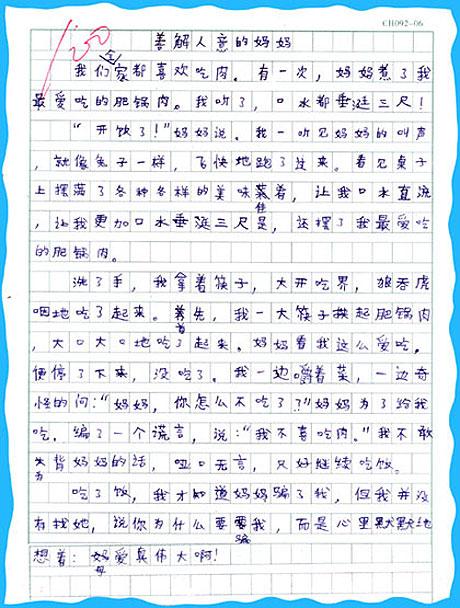 CH092-06
100
善解人意的妈妈
我们全家都喜欢吃肉。有一次，妈妈煮了我
最爱吃的肥锅肉。我听了，口水都垂涎三尺！
“开饭了！”妈妈说。我一听见妈妈的叫声
，就像兔子一样，飞快地跑了过来。看见桌子
上摆满了各种各样的美味菜肴，让我口水直流
，让我更加口水垂涎三尺是，还摆了我最爱吃
的肥锅肉。
洗了手，我拿着筷子，大开吃界，狼吞虎
咽地吃了起来。首先，我一大筷子拱起肥锅肉
，大口大口地吃了起来。妈妈看我这么爱吃，
便停了下来，没吃了。我一边嚼着菜，一边奇
怪的问：“妈妈，你怎么不吃了？”妈妈为了给我
吃，编了一个谎言，说：“我不喜吃肉。”我不敢
违背妈妈的话，哑口无言，只好继续吃饭。
吃了饭，我才知道妈妈骗了我，但我并没
有找她，说你为什么要骗我，而是心里默默地
想着：母爱真伟大啊！